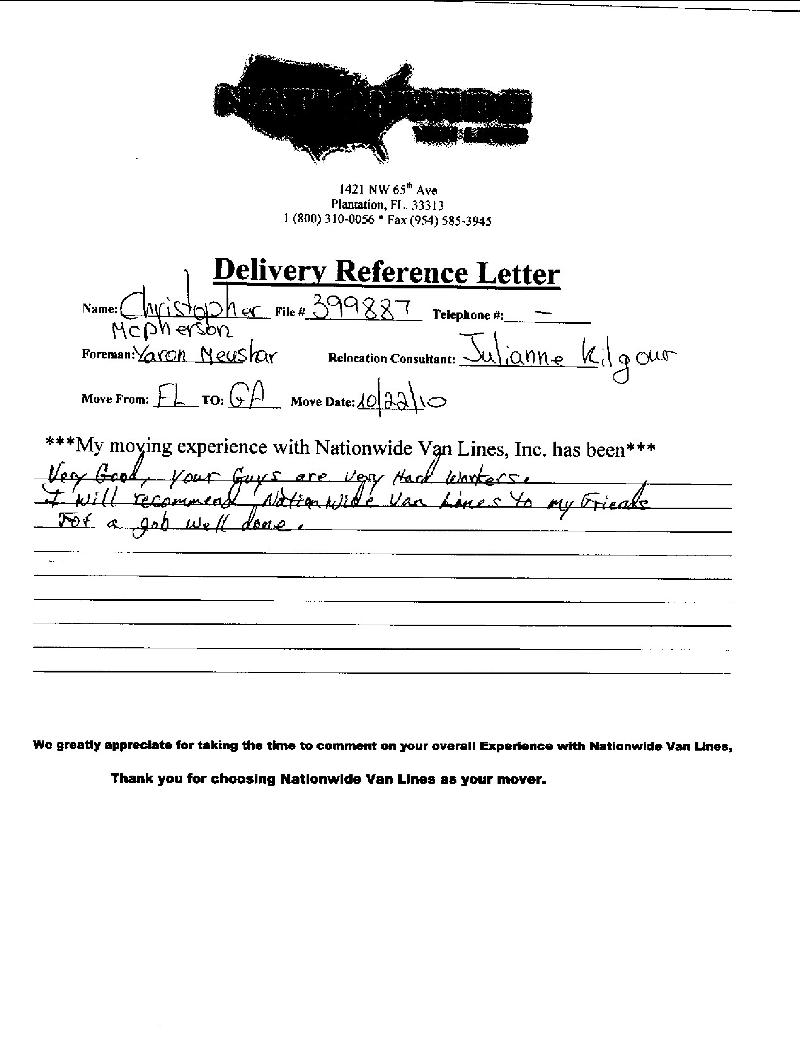 NATIONWIDE
VAN LINES
1421 NW 65th Ave
Plantation, FL. 33313
1 (800) 310-0056 * Fax (954) 585-3945
Delivery Reference Letter
Name: Christopher McPherson File # 399887 Telephone #: —
Foreman: Yaron Meushar Relocation Consultant: Julianne Kilgour
Move From: FL TO: GA Move Date: 10/22/10
***My moving experience with Nationwide Van Lines, Inc. has been***
Very Good, Your Guys are very Hard Workers.
I will recommend Nation Wide Van Lines To my Friends
For a job well done.
We greatly appreciate for taking the time to comment on your overall Experience with Nationwide Van Lines,
Thank you for choosing Nationwide Van Lines as your mover.